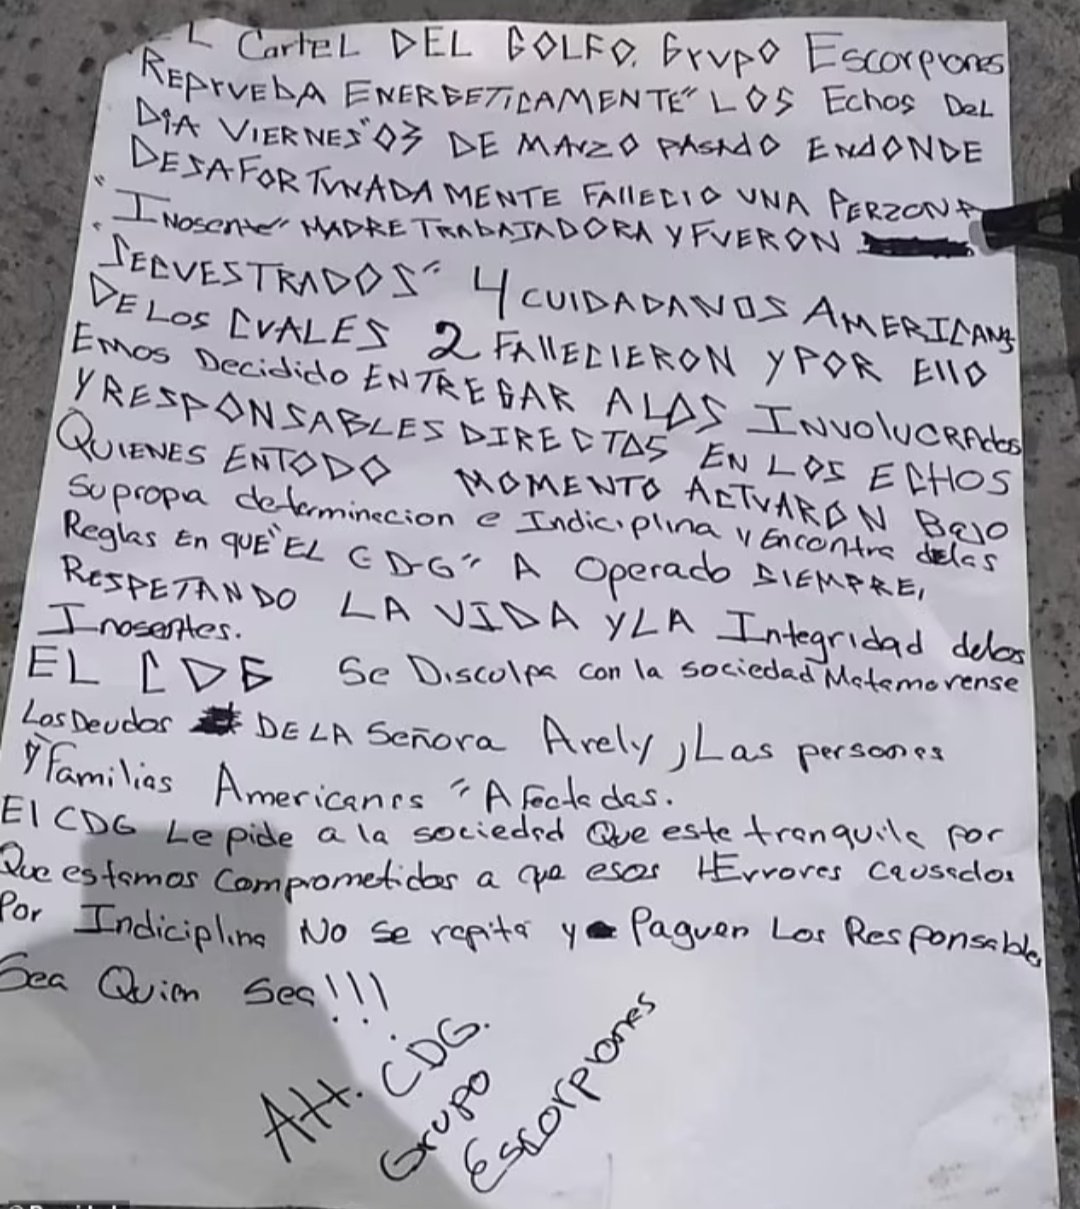 L CartEL DEL GOLFO. Grupo Escorpiones
REPrVEbA ENERGETICAMENTE" LOS Echos DEL
DiA VIERNES" 03 DE MArZO PASADO ENDONDE
DESAFORTUNADAMENTE FAllECIO UNA PERZONA
"INosente" MADRE TRAbAJADORA Y FVERON
"SECVESTRADOS" 4 CUIDADANOS AMERICANS
DE LOS CVALES 2 FAllECIERON Y POR Ello
Emos Decidido ENTREGAR A LOS INVOlUCRAdos
Y RESPONSABLES DIRECTOS EN LOS ECHOS
QUIENES ENTODO MOMENTO ACTVARON BAJO
Su propia determinecion e Indiciplina y Encontra delas
Reglas En QUE "EL CDG" A Operado SIEMPRE,
RESPETANDO LA VIDA Y LA Integridad delos
Inosentes.
EL CDG Se Disculpa con la sociedad Matamorense
Los Deudos DE LA Señora Arely, Las persones
Y Familias Americanas "Afectadas.
El CDG Le pide a la sociedad Que este tranquila por
Que estamos comprometidos a que esos Errores causados
Por Indiciplina No se repita y Paguen Los Responsables
Sea Quien Sea!!!
Att. CDG.
Grupo
Escorpiones